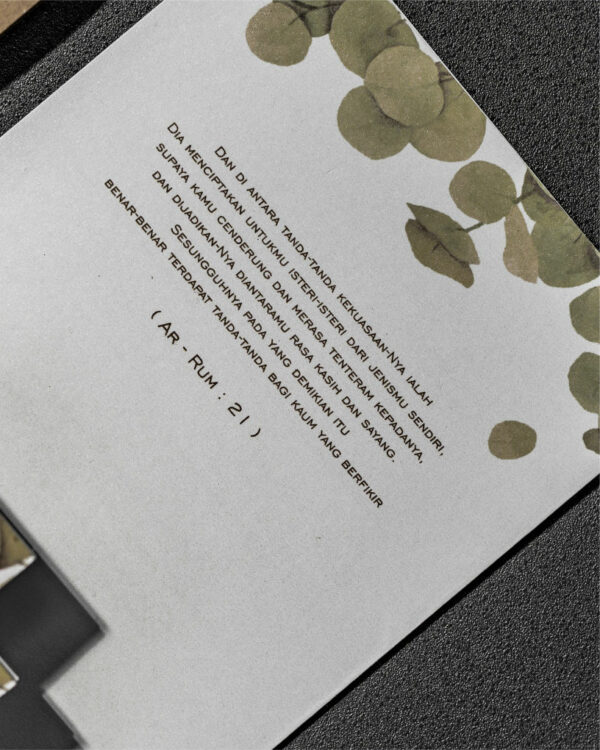 Dan di antara tanda-tanda kekuasaan-Nya ialah
Dia menciptakan untukmu isteri-isteri dari jenismu sendiri,
supaya kamu cenderung dan merasa tenteram kepadanya,
dan dijadikan-Nya diantaramu rasa kasih dan sayang.
Sesungguhnya pada yang demikian itu
benar-benar terdapat tanda-tanda bagi kaum yang berfikir
( Ar - Rum : 21 )